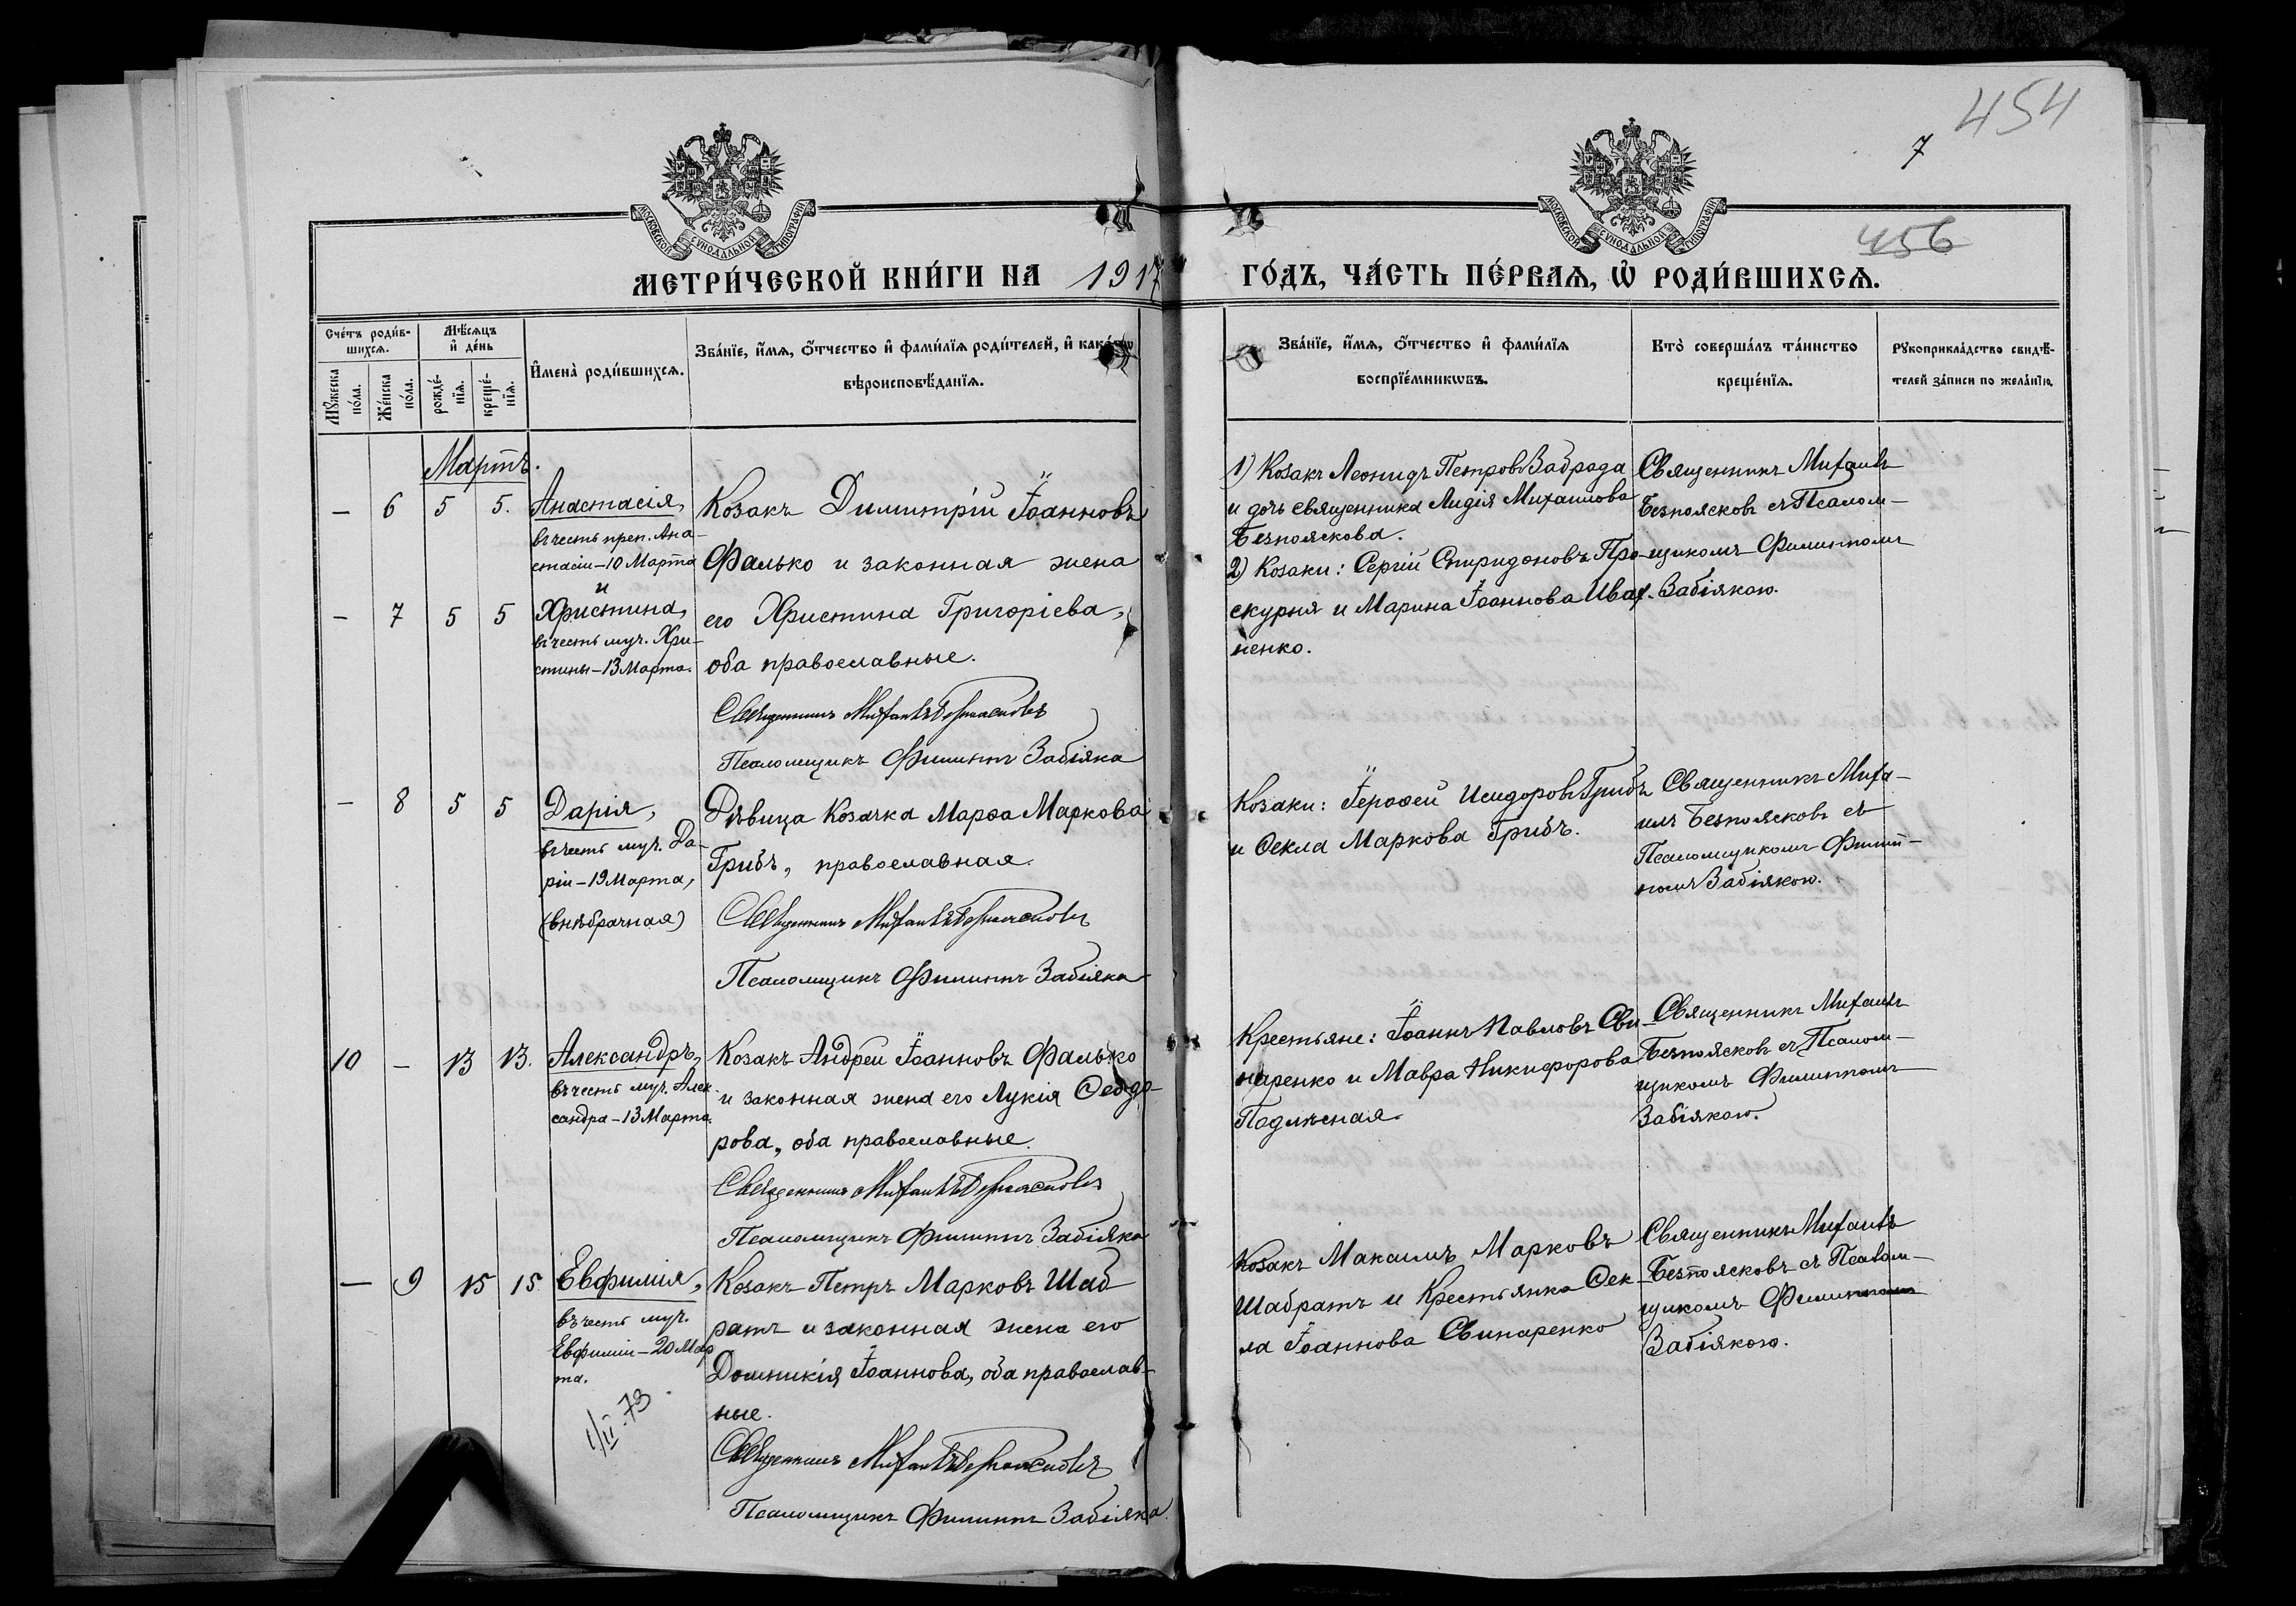 454
7
456
МОСКОВСКОЙ СѴНОДАЛЬНОЙ ТИПОГРАФІИ
МОСКОВСКОЙ СѴНОДАЛЬНОЙ ТИПОГРАФІИ
МЕТРИ́ЧЕСКОЙ КНИ́ГИ НА 1917
ГО́ДЪ, ЧА́СТЬ ПЕ́РВАѦ, Ѡ҆ РОДИ́ВШИХСѦ.
Сче́тъ роди́в-
шихсѧ.
Мꙋ́жеска
по́ла.
Же́нска
по́ла.
Мѣ́сѧцъ
и҆ де́нь
рожде́-
нїѧ.
креще́-
нїѧ.
И҆мена̀ роди́вшихсѧ.
Зва́нїе, и҆́мѧ, ѻ҆́тчество и҆ фами́лїѧ роди́телей, и҆ како́гѡ
вѣроисповѣ́данїѧ.
Зва́нїе, и҆́мѧ, ѻ҆́тчество и҆ фами́лїѧ
воспрїе́мникѡвъ.
Кто̀ соверша́лъ та́инство
креще́нїѧ.
Рꙋкоприкла́дство свидѣ́-
телей за́писи по жела́нїю.
Мартъ.
— 6 5 5. Анастасія,
въ честь преп. Ана-
стасіи – 10 Марта
и
— 7 5 5 Христина,
въ честь муч. Хри-
стины – 13 Марта.
Козакъ Димитрій Іоанновъ
Фалько и законная жена
его Христина Григоріева,
оба православные.
Священникъ Михаилъ Безпоясковъ
Псаломщикъ Филиппъ Забіяка
1) Козакъ Леонидъ Петровъ Забрада
и дочь священника Лидія Михаилова
Безпояскова.
2) Козаки: Сергій Спиридоновъ Про-
скурня и Марина Іоаннова Ивах-
ненко.
Священникъ Михаилъ
Безпоясковъ съ Псалом-
щикомъ Филиппомъ
Забіякою.
— 8 5 5 Дарія,
въ честь муч. Да-
ріи – 19 Марта,
(внѣбрачная)
Дѣвица Козачка Марѳа Маркова
Грибъ, православная.
Священникъ Михаилъ Безпоясковъ
Псаломщикъ Филиппъ Забіяка
Козаки: Іероѳей Исидоровъ Грибъ
и Ѳекла Маркова Грибъ.
Священникъ Миха-
илъ Безпоясковъ съ
Псаломщикомъ Филип-
помъ Забіякою.
10 — 13 13. Александръ,
въ честь муч. Алек-
сандра – 13 Марта.
Козакъ Андрей Іоанновъ Фалько
и законная жена его Лукія Ѳеодо-
рова, оба православные.
Священникъ Михаилъ Безпоясковъ
Псаломщикъ Филиппъ Забіяка
Крестьяне: Іоаннъ Павловъ Сви-
наренко и Мавра Никифорова
Подлѣсная.
Священникъ Михаилъ
Безпоясковъ съ Псалом-
щикомъ Филиппомъ
Забіякою.
— 9 15 15 Евфимія,
въ честь муч.
Евфиміи – 20 Мар
та.
1/II.73
Козакъ Петръ Марковъ Шаб
ратъ и законная жена его
Домникія Іоаннова, оба православ-
ные.
Священникъ Михаилъ Безпоясковъ
Псаломщикъ Филиппъ Забіяка.
Козакъ Макаимъ Марковъ
Шабратъ и Крестьянка Ѳек-
ла Іоаннова Свинаренко
Священникъ Михаилъ
Безпоясковъ съ Псалом-
щикомъ Филиппомъ
Забіякою.